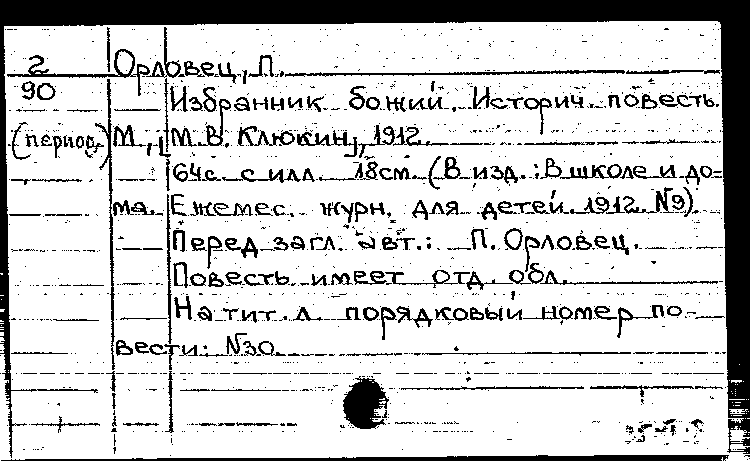 2 Орловец, П.
90 Избранник божий. Историч. повесть.
(период.) М., [М.В. Клюкин], 1912.
64с. с илл. 18см. (В изд.: В школе и до-
ма. Ежемес. журн. для детей. 1912. №9).
Перед загл. авт.: П. Орловец.
Повесть имеет отд. обл.
На тит. л. порядковый номер по-
вести: №30.